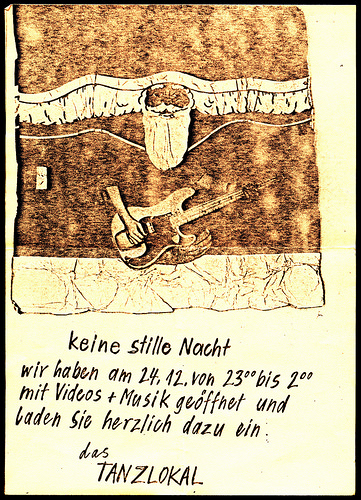 keine stille Nacht
wir haben am 24.12. von 23⁰⁰ bis 2⁰⁰
mit Videos + Musik geöffnet und
laden Sie herzlich dazu ein.
das
TANZLOKAL